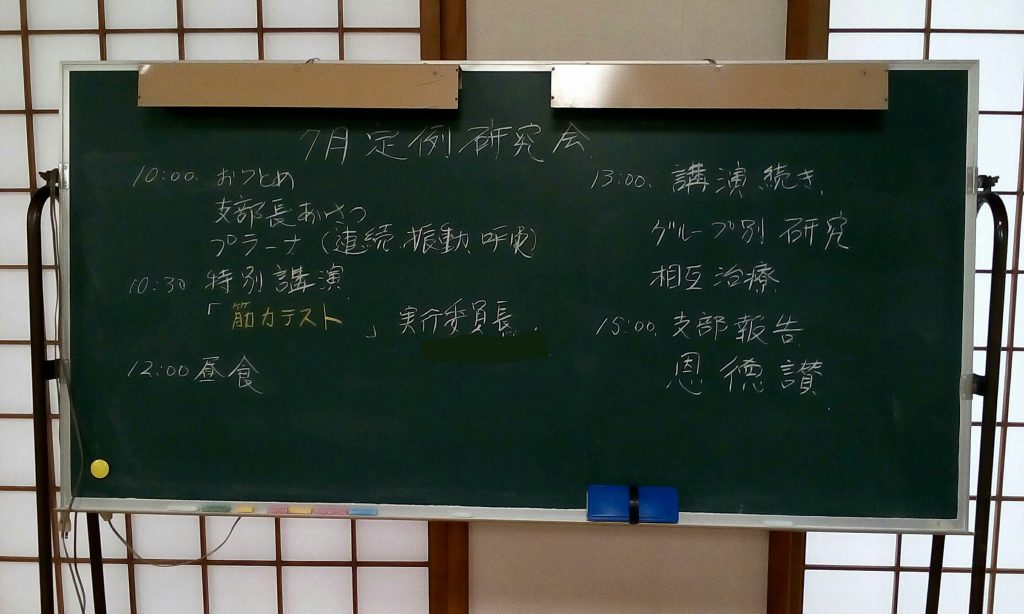 7月定例研究会
10:00. おつとめ
支部長あいさつ
プラーナ (連続、振動、呼吸)
10:30 特別講演
「筋力テスト」 実行委員長
12:00 昼食
13:00. 講演続き
グループ別研究
相互治療
15:00. 支部報告
恩徳讃